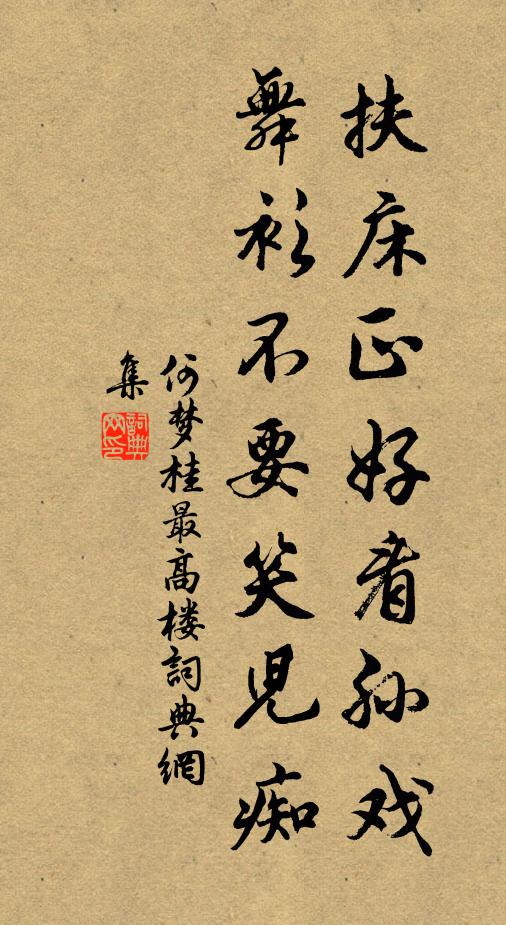 扶床正好看孙戏
舞衫不要笑儿痴
何梦桂最高楼詞典網
集
詞典
网印